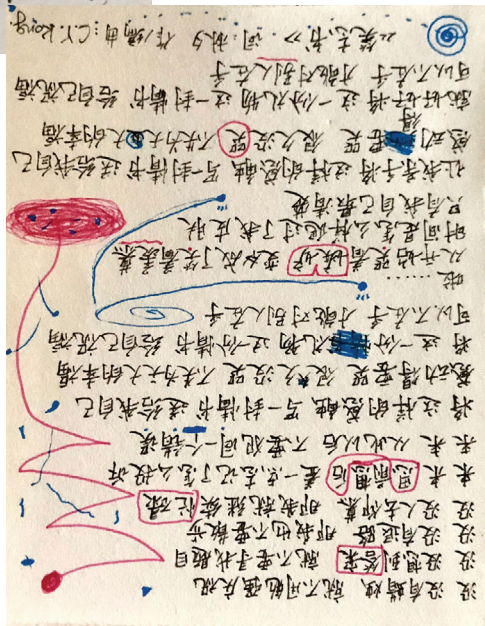 没 没有蜡烛 就不用勉强庆祝
没 没想到答案 就不要寻找题目
没 没有退路 那我也不要散步
没 没人去仰慕 那我就继续忙碌
来 来 思前想后 差一点忘记了怎么投诉
来 来 从此以后 不要犯同一个错误
将这样的感触 写一封情书 送给我自己
感动得要哭 很久没哭 不失为天大的幸福
将这一份礼物 这一份情书 给自己祝福
可以不在乎 才敢对别人在乎
啦……
从开始哭着嫉妒 变成了笑着羡慕
时间是怎么样爬过了我皮肤
只有我自己最清楚
让我亲手将这样的感触 写一封情书送给我自己
感动得要哭 很久没哭 不失为天大的幸福
就好好将这一份礼物 这一封情书 给自己祝福
可以不在乎 才敢对别人在乎
《笑忘书》 词:林夕 作/编曲:C.Y. Kong